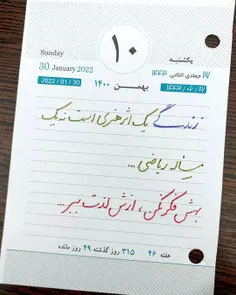 Sunday
۱۰
یکشنبه
30 January 2022
۲۷ جمادی الثانی ۱۴۴۳
2022 / 01 / 30
بهمن ۱۴۰۰
زندگی یک اثر هنری است نه یک
مسئله ریاضی...
بهش فکر نکن، ازش لذت ببر...
هفته ۴۶ ۳۱۵ روز گذشته ۴۹ روز مانده